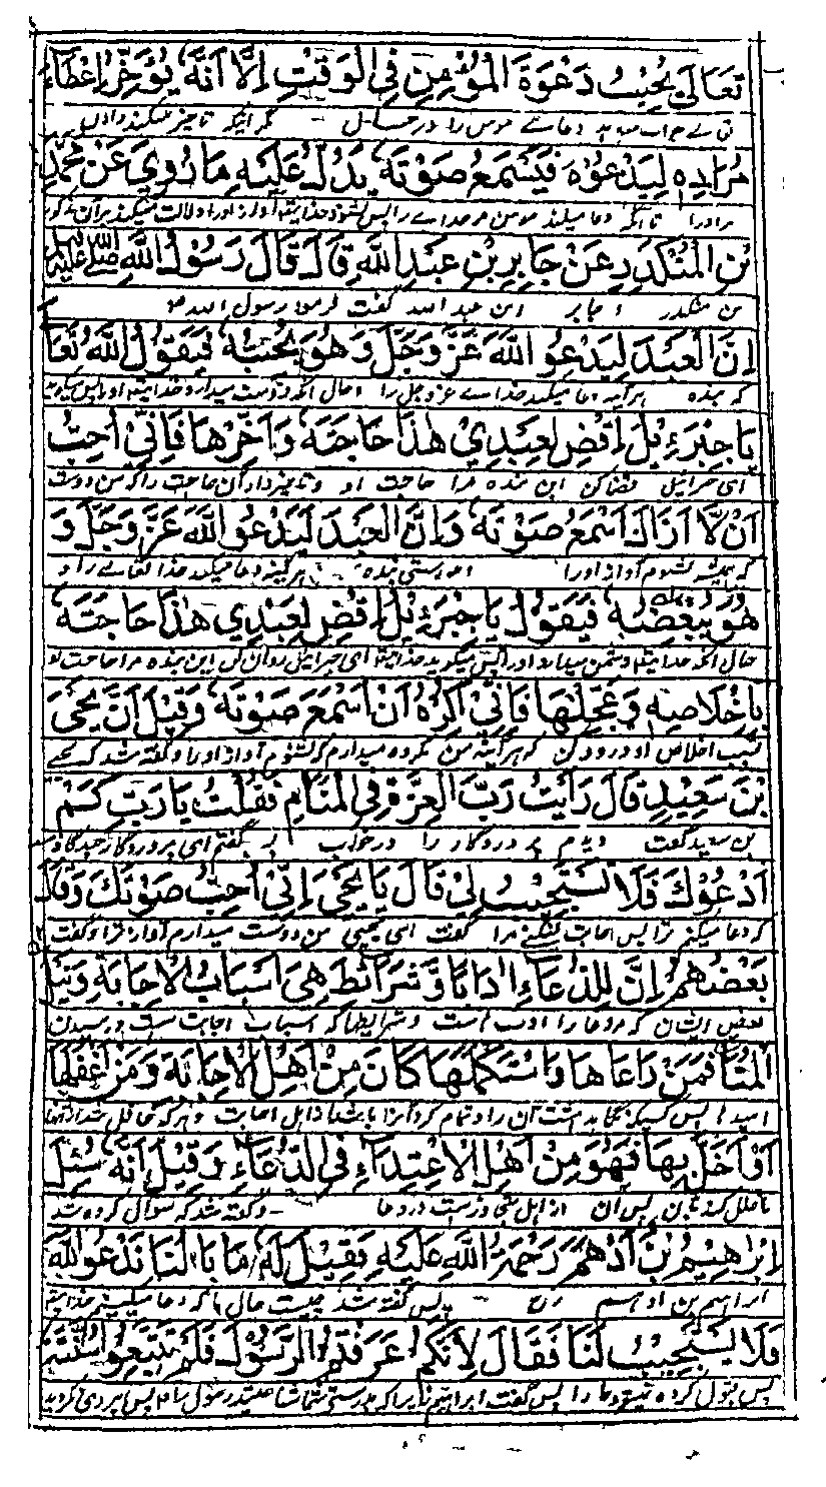 تَعَالَى يُجِيْبُ دَعْوَةَ الْمُؤْمِنِ فِي الْوَقْتِ اِلَّا اَنَّهٗ يُؤَخِّرُ اِعْطَاءَ
تعالے جواب میدہد دعائے مومن را در حال مگر اینکہ تاخیر میکند دادن
مُرَادِهٖ لِيَدْعُوْهُ فَيَسْمَعُ صَوْتَهٗ يَدُلُّ عَلَيْهِ مَا رُوِيَ عَنْ مُحَمَّدِ
مراد را تا آنکہ دعا میکند مومن مر خدا را پس بشنود خدایتعالی آواز او را دلالت میکند بر آن
بْنِ الْمُنْكَدِرِ عَنْ جَابِرِ بْنِ عَبْدِ اللّٰهِ قَالَ قَالَ رَسُوْلُ اللّٰهِ صلى الله عليه
بن منکدر جابر ابن عبد اللہ گفت فرمود رسول اللہ
اِنَّ الْعَبْدَ لِيَدْعُو اللّٰهَ عَزَّ وَجَلَّ وَهُوَ يُحِبُّهٗ فَيَقُوْلُ اللّٰهُ تَعَا
کہ بندہ ہر آینہ دعا میکند خدائے عز و جل را و حال آنکہ دوست میدارد خدایتعالی او را پس میگوید
يَا جِبْرَءِيْلُ اِقْضِ لِعَبْدِيْ هٰذَا حَاجَتَهٗ وَاَخِّرْهَا فَاِنِّيْ اُحِبُّ
ای جبرائیل قضا کن این بندہ مرا حاجت او و تاخیر دار آن حاجت را کہ من دوست
اَنْ لَّا اَزَالَ اَسْمَعُ صَوْتَهٗ وَاِنَّ الْعَبْدَ لَيَدْعُو اللّٰهَ عَزَّ وَجَلَّ وَ
کہ ہمیشہ بشنوم آواز او را بندہ ہر آینہ دعا میکند خدا تعالے را و
هُوَ يُبْغِضُهٗ فَيَقُوْلُ يَا جِبْرَءِيْلُ اِقْضِ لِعَبْدِيْ هٰذَا حَاجَتَهٗ
حال آنکہ خدایتعالی دشمن میدارد او را پس میگوید خدایتعالی ای جبرائیل روان کن این بندہ مرا حاجت او
بِاِخْلَاصِهٖ وَعَجِّلْهَا فَاِنِّيْ اَكْرَهُ اَنْ اَسْمَعَ صَوْتَهٗ وَقِيْلَ اَنَّ يَحْيَى
بسبب اخلاص او در زود کن کہ ہر آینہ من مکروہ میدارم کہ بشنوم آواز او را و گفتہ شد کہ یحیے
بْنَ سَعِيْدٍ قَالَ رَأَيْتُ رَبَّ الْعِزَّةِ فِي الْمَنَامِ فَقُلْتُ يَا رَبِّ كَمْ
بن سعید گفت دیدم پروردگار را در خواب پس گفتم ای پروردگار
اَدْعُوْكَ فَلَا تَسْتَجِيْبُ لِيْ قَالَ يَا يَحْيٰى اِنِّيْ اُحِبُّ صَوْتَكَ وَقَالَ
کہ دعا میکنم ترا پس اجابت نمیکنی مرا گفت ای یحیی من دوست میدارم آواز ترا و گفت
بَعْضُهُمْ اِنَّ لِلدُّعَاءِ اٰدَابًا وَّشَرَائِطَ هِيَ اَسْبَابُ الْاِجَابَةِ وَنَيْلِ
بعض ایشان کہ مر دعا را ادب است و شرایطہا کہ اسباب اجابت است و رسیدن
الْمُنٰى فَمَنْ رَاعَاهَا وَاسْتَكْمَلَهَا كَانَ مِنْ اَهْلِ الْاِجَابَةِ وَمَنْ اَغْفَلَهَا
امید پس کسیکہ نگاہداشت آن را و تمام کرد آنرا باشد از اہل اجابت و ہر کہ غافل شد از آنہا
اَوْ اَخَلَّ بِهَا فَهُوَ مِنْ اَهْلِ الْاِعْتِدَاءِ فِي الدُّعَاءِ وَقِيْلَ اَنَّهٗ سُئِلَ
یا خلل کند پس آن از اہل در دعا و گفتہ شد کہ سوال کردہ شد
اِبْرَاهِيْمُ بْنُ اَدْهَمَ رَحْمَةُ اللّٰهِ عَلَيْهِ فَقِيْلَ لَهٗ مَا بَالُنَا نَدْعُو اللّٰهَ
ابراہیم بن ادہم پس گفتہ شد چیست حال ما کہ دعا میکنیم
فَلَا يَسْتَجِيْبُ لَنَا فَقَالَ لِاَنَّكُمْ عَرَفْتُمُ الرَّسُوْلَ فَلَمْ تَتَّبِعُوْا سُنَّتَهٗ
پس قبول کردہ نمیشود ما را پس گفت ابراہیم زیرا کہ بدرستی شما شناختید رسول را پس پیروی نکردید